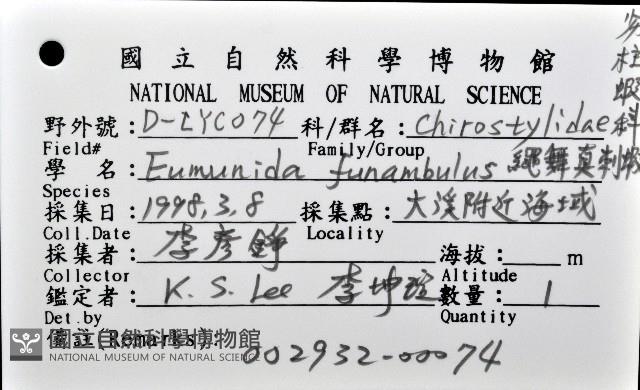 國立自然科學博物館
NATIONAL MUSEUM OF NATURAL SCIENCE
野外號:D-LYC074 科/群名:Chirostylidae
Field# Family/Group
刺柱蝦科
學 名:Eumunida funambulus 繩舞真刺蝦
Species
採集日:1998.3.8 採集點:大溪附近海域
Coll.Date Locality
採集者:李彥錚 海拔: m
Collector Altitude
鑑定者:K.S. Lee 李坤瑄 數量:1
Det.by Quantity
備註(Remarks):
國立自然科學博物館
NATIONAL MUSEUM OF NATURAL SCIENCE
002932-00074